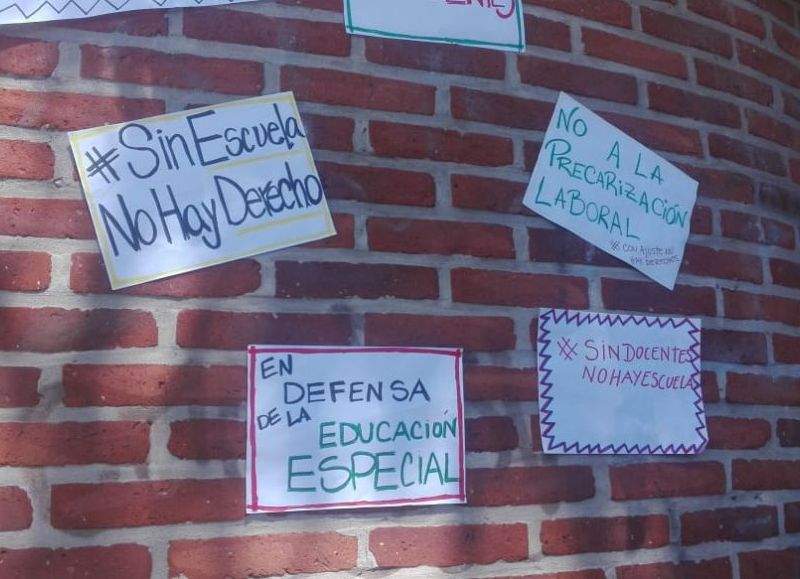 #Sin Escuela
No Hay Derecho
NO A LA
PRECARIZACIÓN
LABORAL
# CON AJUSTE NO
HAY DERECHOS
EN
DEFENSA
DE LA
EDUCACIÓN
ESPECIAL
# SIN DOCENTES
NO HAY ESCUELA